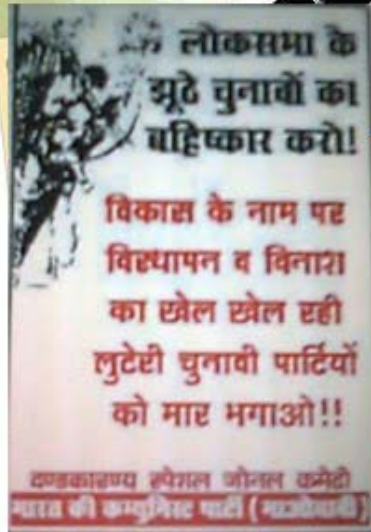 लोकसभा के
झूठे चुनावों का
बहिष्कार करो!
विकास के नाम पर
विस्थापन व विनाश
का खेल खेल रही
लुटेरी चुनावी पार्टियों
को मार भगाओ!!
दण्डकारण्य स्पेशल जोनल कमेटी
भारत की कम्युनिस्ट पार्टी (माओवादी)